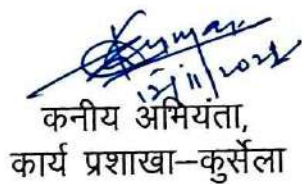 Kumar
12/11/2021
कनीय अभियंता,
कार्य प्रशाखा–कुर्सेला